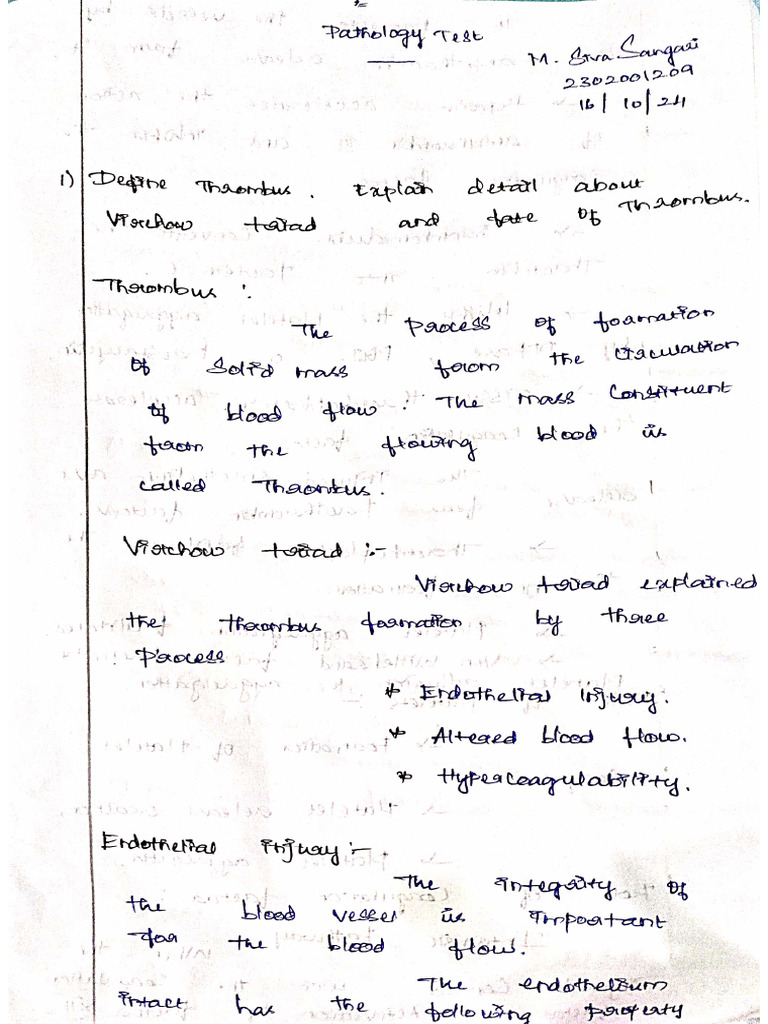 Pathology Test
M. Siva Sangari
2302001209
16/10/24
1) Define Thrombus. Explain detail about
Virchow triad and fate of Thrombus.
Thrombus :
The Process of formation
of Solid mass from the Circulation
of blood flow. The mass Constituent
from the flowing blood is
called Thrombus.
Virchow triad :-
Virchow triad explained
the thrombus formation by three
Process
* Endothelial Injury.
* Altered blood flow.
* Hypercoagulability.
Endothelial injury :-
The integrity of
the blood vessel is important
for the blood flow.
The endothelium
intact has the following property